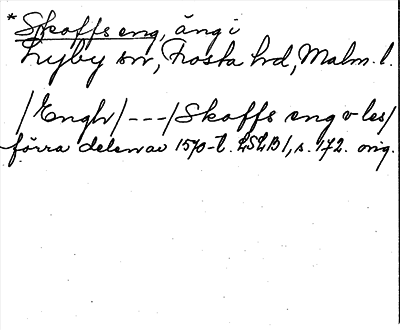 * Skoffs eng, äng i
Lyby sn, Frosta hd, Malm. l.
/Engh/ --- /Skoffs eng v les/
förra delen av 1570-t. LSLB 1, s. 172. orig.